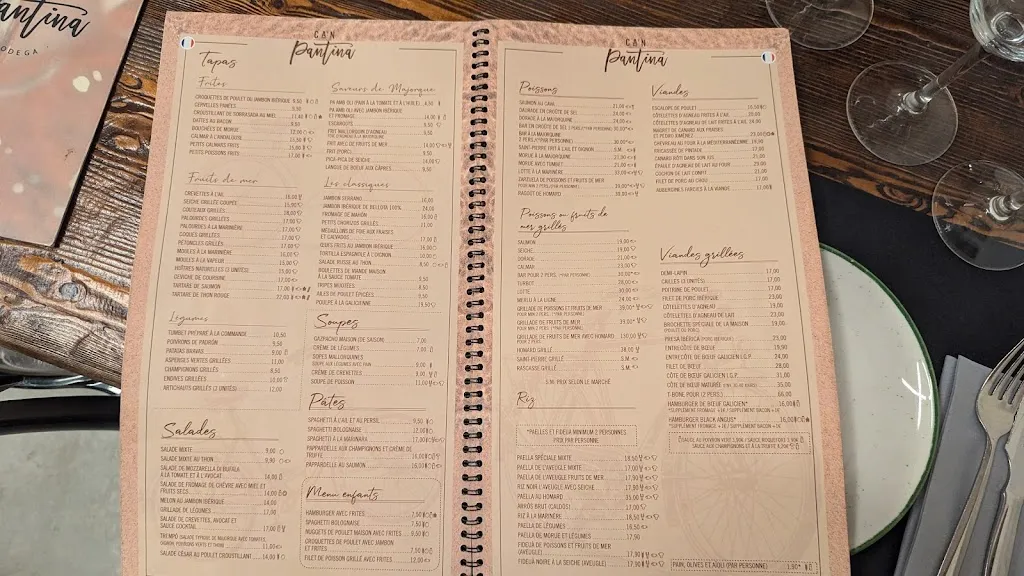 antina
ODEGA
CA'N
Pantina
Tapas
Frites
CROQUETTES DE POULET OU JAMBON IBÉRIQUE 9,50
CERVELLES PANÉES 9,50
CROUSTILLANT DE SOBRASADA AU MIEL
DATTES AU BACON 9,50
BOUCHÉES DE MORUE 12,00
CALMAR À L'ANDALOUSE 15,00
PETITS CALMARS FRITS 15,00
PETITS POISSONS FRITS 17,00
Fruits de mer
CREVETTES À L'AIL 16,00
SEICHE GRILLÉE COUPÉE 15,00
COUTEAUX GRILLÉS
PALOURDES GRILLÉES 17,00
PALOURDES À LA MARINIÈRE 17,00
COQUES GRILLÉES 17,00
PÉTONCLES GRILLÉS 17,00
MOULES À LA MARINIÈRE 16,00
MOULES À LA VAPEUR 15,00
HUÎTRES NATURELLES (3 UNITÉS) 15,00
CEVICHE DE COURBINE 17,00
TARTARE DE SAUMON 17,00
TARTARE DE THON ROUGE
Légumes
TUMBET PRÉPARÉ À LA COMMANDE 10,50
POIVRONS DE PADRÓN 9,50
PATATAS BRAVAS 9,00
ASPERGES VERTES GRILLÉES 11,00
CHAMPIGNONS GRILLÉS 8,50
ENDIVES GRILLÉES 10,00
ARTICHAUTS GRILLÉS (3 UNITÉS) 12,00
Salades
SALADE MIXTE 9,00
SALADE MIXTE AU THON 9,90
SALADE DE MOZZARELLA DI BUFALA
À LA TOMATE ET À L'AVOCAT 14,00
SALADE DE FROMAGE DE CHÈVRE AVEC MIEL ET
FRUITS SECS 14,00
MELON AU JAMBON IBÉRIQUE 14,00
GRILLADE DE LÉGUMES 17,00
SALADE DE CREVETTES, AVOCAT ET
SAUCE COCKTAIL 17,00
TREMPÓ
11,00
SALADE CÉSAR AU POULET CROUSTILLANT 14,00
Saveurs de Majorque
PA AMB OLI (PAIN À LA TOMATE ET À L'HUILE) 4,50
PA AMB OLI AVEC JAMBON
ET FROMAGE 14,00
ESCARGOTS 9,50
FRIT MALLORQUIN D'AGNEAU
FRIT AVEC FRUITS DE MER 14,00
FRIT (PORC) 9,50
PICA-PICA DE SEICHE 14,00
LANGUE DE BŒUF AUX CÂPRES 9,50
Les classiques
JAMBON SERRANO 16,00
JAMBON IBÉRIQUE DE BELLOTA 100% 24,00
FROMAGE DE MAHÓN 16,00
PETITS CHORIZOS GRILLÉS 11,00
MÉDAILLONS DE FOIE AUX FRAISES
ET CALVADOS 17,00
ŒUFS FRITS AU JAMBON IBÉRIQUE 16,00
TORTILLA ESPAGNOLE À L'OIGNON 10,00
SALADE RUSSE AU THON 8,50
BOULETTES DE VIANDE MAISON
À LA SAUCE TOMATE 9,50
TRIPES MIJOTÉES 9,50
AILES DE POULET ÉPICÉES 9,50
POULPE À LA GALICIENNE 19,50
Soupes
GAZPACHO MAISON (DE SAISON) 7,00
CRÈME DE LÉGUMES 7,00
SOPES MALLORQUINES
SOUPE AUX LÉGUMES AVEC PAIN 9,00
CRÈME DE CREVETTES 9,00
SOUPE DE POISSON 11,00
Pâtes
SPAGHETTI À L'AIL ET AU PERSIL 9,50
SPAGHETTI BOLOGNAISE 12,00
SPAGHETTI À LA MARINARA 17,00
PAPPARDELLE AUX CHAMPIGNONS ET CRÈME DE
TRUFFE 16,00
PAPPARDELLE AU SAUMON 16,00
Menu enfants
HAMBURGER AVEC FRITES 7,50
SPAGHETTI BOLOGNAISE 7,50
NUGGETS DE POULET MAISON AVEC FRITES 9,50
CROQUETTES DE POULET AVEC JAMBON
ET FRITES 7,50
FILET DE POISSON GRILLÉ AVEC FRITES 12,00
CA'N
Pantina
Poissons
SAUMON AU CAVA 21,00
DAURADE EN CROÛTE DE SEL 24,00
DORADE À LA MAJORQUINE 24,00
BAR EN CROÛTE DE SEL 2 PERS. (*PAR PERSONNE) 30,00*
BAR À LA MAJORQUINE
2 PERS. (*PAR PERSONNE) 30,00*
SAINT-PIERRE FRIT À L'AIL ET OIGNON S.M.
MORUE À LA MAJORQUINE 21,90
MORUE AVEC TUMBET 21,00
LOTTE À LA MARINIÈRE 32,00
ZARZUELA DE POISSONS ET FRUITS DE MER
POUR MIN 2 PERS. (*PAR PERSONNE) 30,00*
RAGOÛT DE HOMARD 39,00
Poissons ou fruits de
mer grillés
SAUMON 19,00
SEICHE 19,00
DORADE 21,00
CALMAR 23,00
BAR POUR 2 PERS. *PAR PERSONNE 30,00*
TURBOT 28,00
LOTTE 30,00
MERLU À LA LIGNE 24,00
GRILLADE DE POISSONS ET FRUITS DE MER 39,00*
POUR MIN 2 PERS. (*PAR PERSONNE)
GRILLADE DE FRUITS DE MER 39,00*
POUR MIN 2 PERS. (*PAR PERSONNE)
GRILLADE DE FRUITS DE MER AVEC HOMARD 130,00
POUR 2 PERS
HOMARD GRILLÉ
SAINT-PIERRE GRILLÉ S.M.
RASCASSE GRILLÉE S.M.
S.M. PRIX SELON LE MARCHÉ
Riz
*PAELLES ET FIDEUÀ MINIMUM 2 PERSONNES
PRIX PAR PERSONNE
PAELLA SPÉCIALE MIXTE 18,50
PAELLA DE L'AVEUGLE MIXTE 17,00
PAELLA DE L'AVEUGLE MIXTE 17,00
RIZ NOIR L'AVEUGLE AVEC SEICHE 17,90
PAELLA AU HOMARD 35,00
ARRÒS BRUT (CALDÓS) 17,00
RIZ À LA MARINIÈRE 18,50
PAELLA DE LÉGUMES 16,50
PAELLA DE MORUE ET LÉGUMES 17,90
FIDEUÀ DE POISSONS ET FRUITS DE MER
(AVEUGLE) 17,90
FIDEUÀ NOIRE À LA SEICHE (AVEUGLE) 17,90
Viandes
ESCALOPE DE POULET 16,50
CÔTELETTES D'AGNEAU FRITES À L'AIL 20,00
CÔTELETTES D'AGNEAU DE LAIT FRITES À L'AIL 24,90
MAGRET DE CANARD AUX FRAISES
ET PEDRO XIMÉNEZ 23,00
CHEVREAU AU FOUR À LA MÉDITERRANÉENNE 19,00
FRICASSÉE DE PINTADE 17,00
CANARD RÔTI DANS SON JUS 21,00
ÉPAULE D'AGNEAU DE LAIT AU FOUR 29,00
COCHON DE LAIT CONFIT 21,00
FILET DE PORC AU CHOU 17,00
AUBERGINES FARCIES À LA VIANDE 17,00
Viandes grillées
DEMI-LAPIN 17,00
CAILLES (3 UNITÉS) 17,00
POITRINE DE POULET 17,00
FILET DE PORC IBÉRIQUE 23,00
CÔTELETTES D'AGNEAU 19,00
CÔTELETTES D'AGNEAU DE LAIT 23,00
BROCHETTE SPÉCIALE DE LA MAISON 19,00
(POULET OU PORC)
PRESA IBÉRICA (PORC IBÉRIQUE) 23,00
ENTRECÔTE DE BŒUF 19,90
ENTRECÔTE DE BŒUF GALICIEN I.G.P. 24,00
FILET DE BŒUF 28,00
CÔTE DE BŒUF GALICIEN I.G.P. 31,00
CÔTE DE BŒUF MATURÉE 35,00
T-BONE POUR (2 PERS.) 66,00
HAMBURGER DE BŒUF GALICIEN* 16,00
*SUPPLÉMENT FROMAGE + 1€ / SUPPLÉMENT BACON + 1€
HAMBURGER BLACK ANGUS* 16,00
*SUPPLÉMENT FROMAGE + 1€ / SUPPLÉMENT BACON + 1€
SAUCE AU POIVRON VERT 1,90€ / SAUCE ROQUEFORT 1,90€
SAUCE AUX CHAMPIGNONS ET À LA TRUFFE 3,20€
PAIN, OLIVES ET AÏOLI (PAR PERSONNE) 1,90*